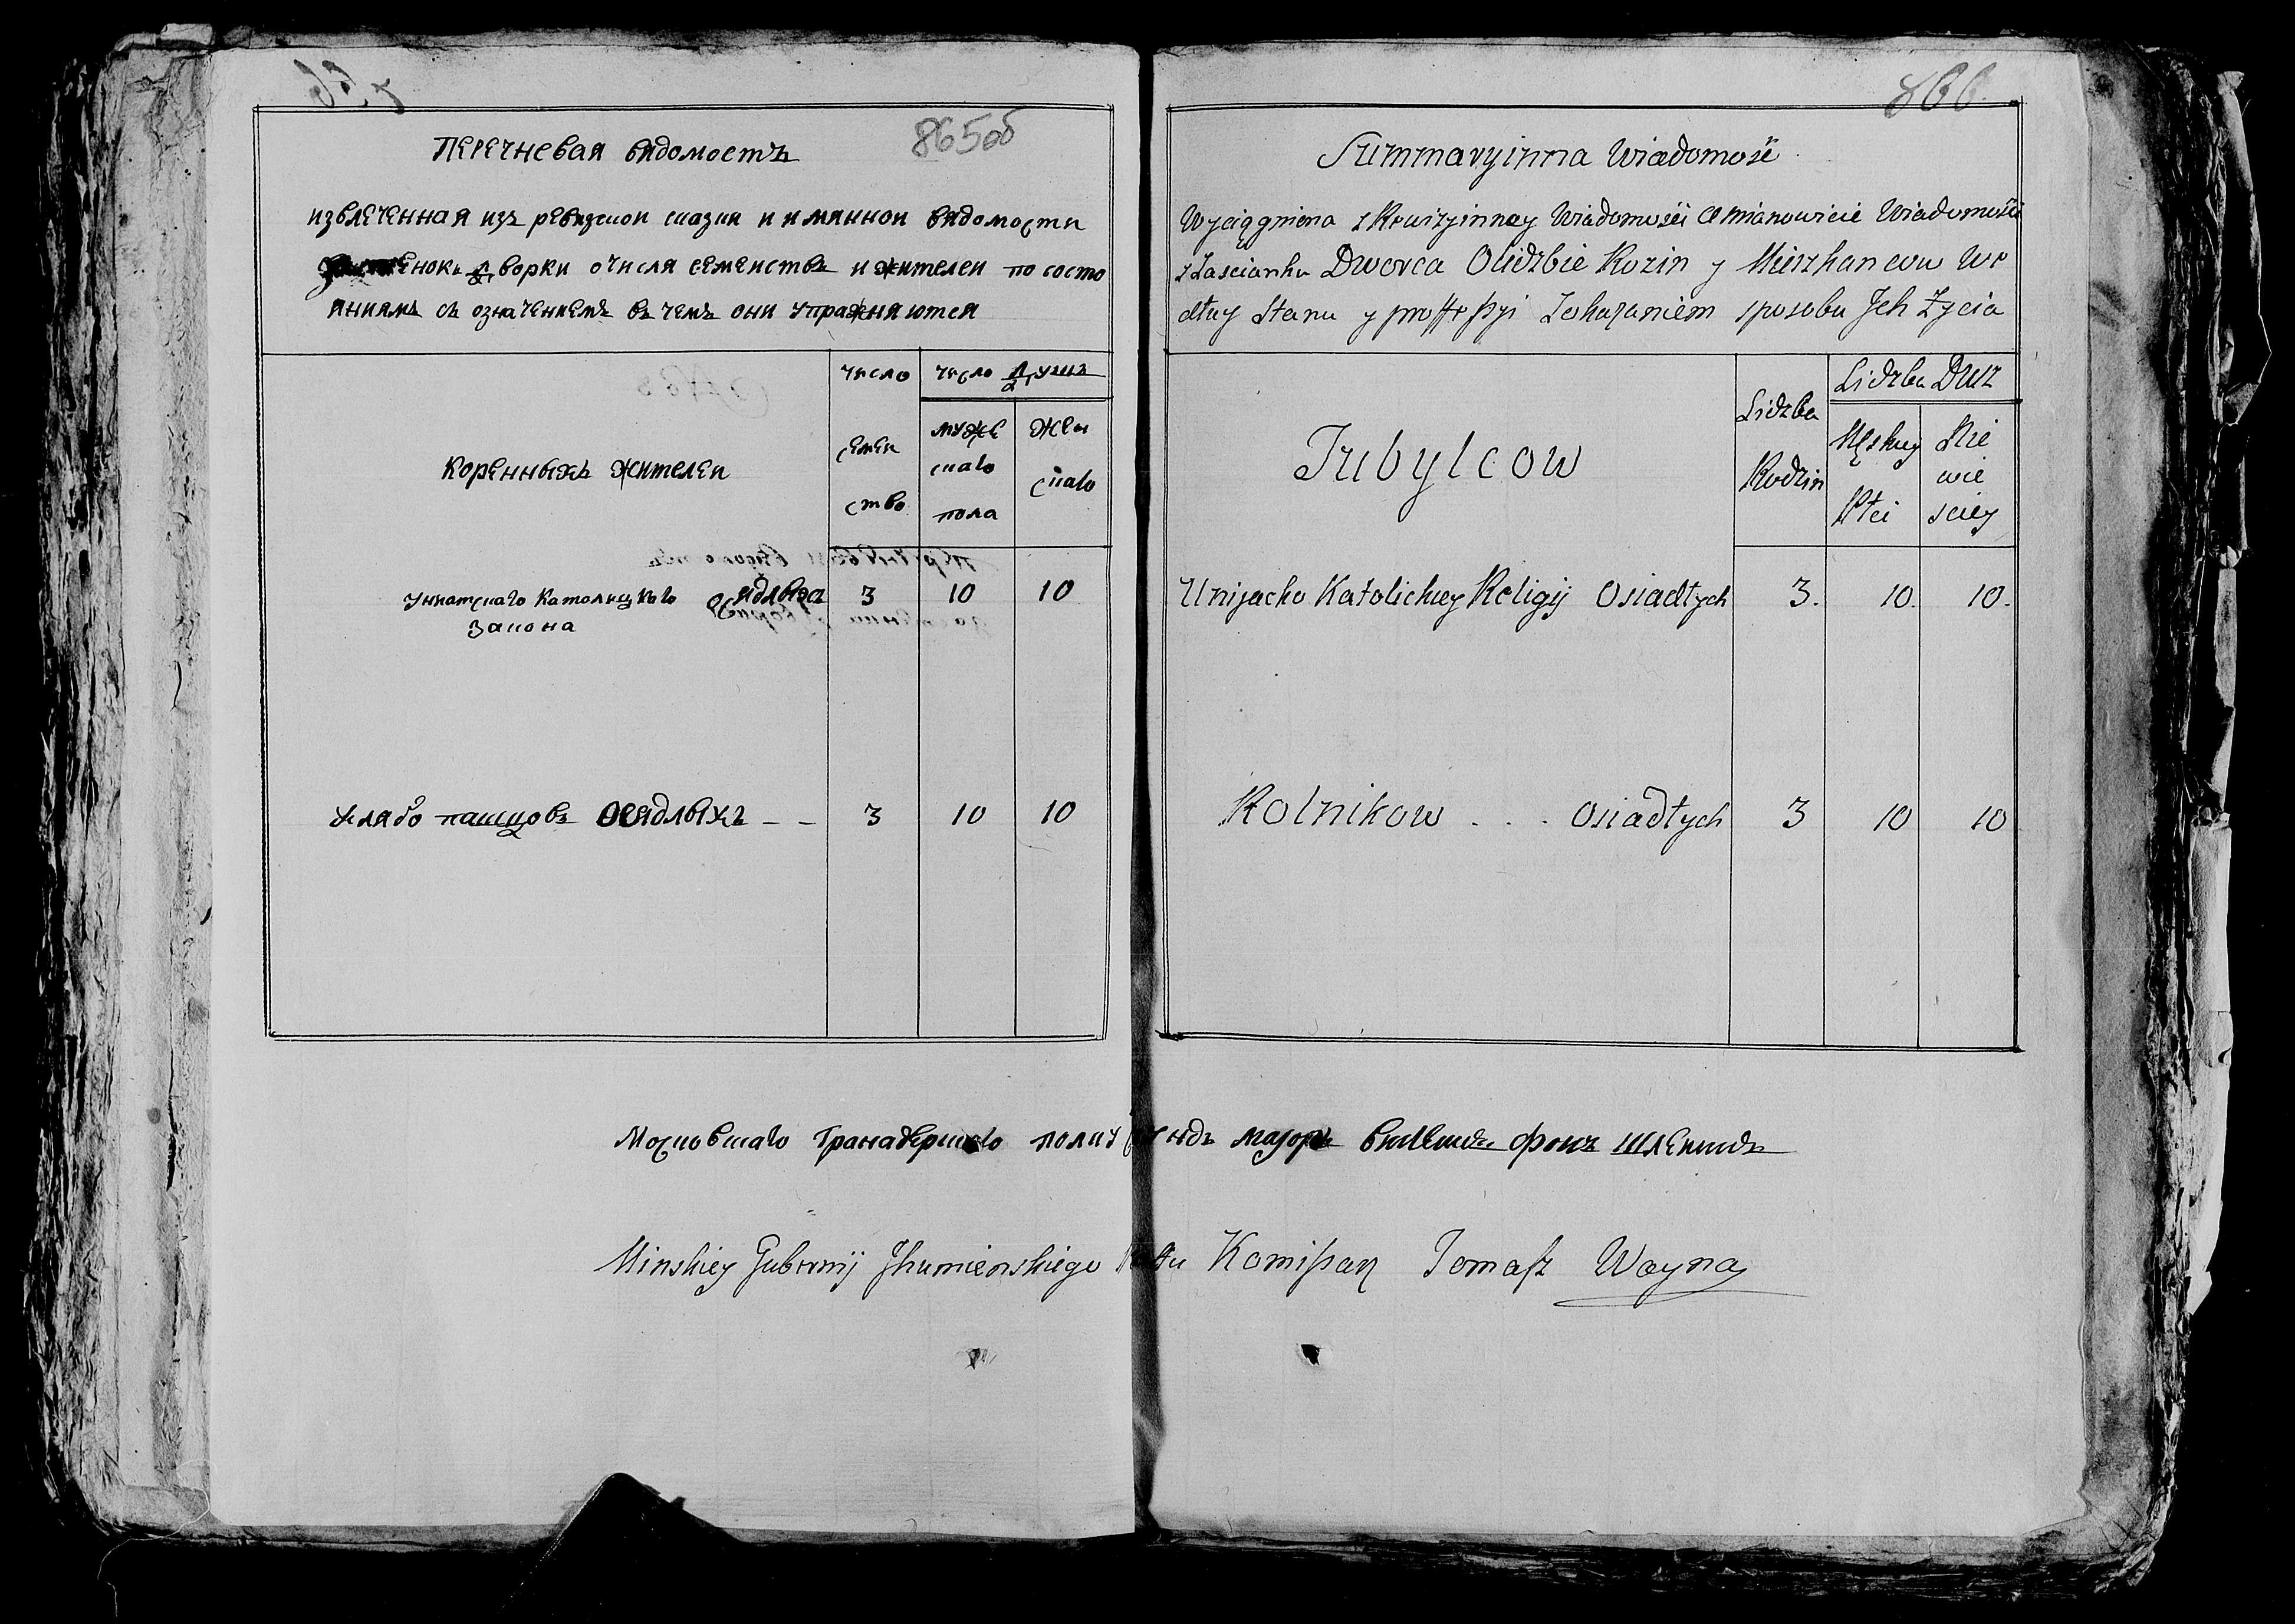 865об
Перечневая вядомостъ
извлеченная изъ ревизскои сказки и имяннои вядомости
Дворки очисля семенствъ и жителеи по состо
яниямъ съ означениемъ в чемъ они упражняются
коренныхъ жителеи
число
семеи
ство
число Душъ
муже
скаго
пола
жен
скаго
униатскаго Католицкаго осядлыхъ 3 10 10
закона
хлябопашцовъ осядлыхъ - - 3 10 10
866.
Summaryinna Wiadomość
Wyciągniona z Rewizyinney Wiadomości a mianowicie Wiadomości
z Zascianku Dworca O lidzbie Rozin y Mieszkancow we
dług Stanu y proffessyi Z okazaniem sposobu Jch Zycia
Tubylcow
Lidzba
Rodzin
Lidzba Dusz
Męskiey
Płci
Nie
wie
sciey
Unijacko Katolickiey Religij Osiadłych 3. 10. 10.
Rolnikow . . . Osiadłych 3 10 10
Московскаго Гранадерскаго полку Секундъ маіоръ фонъ
Minskiey Gubernij Jhumienskiego Pttu Komissarz Tomasz Wayna